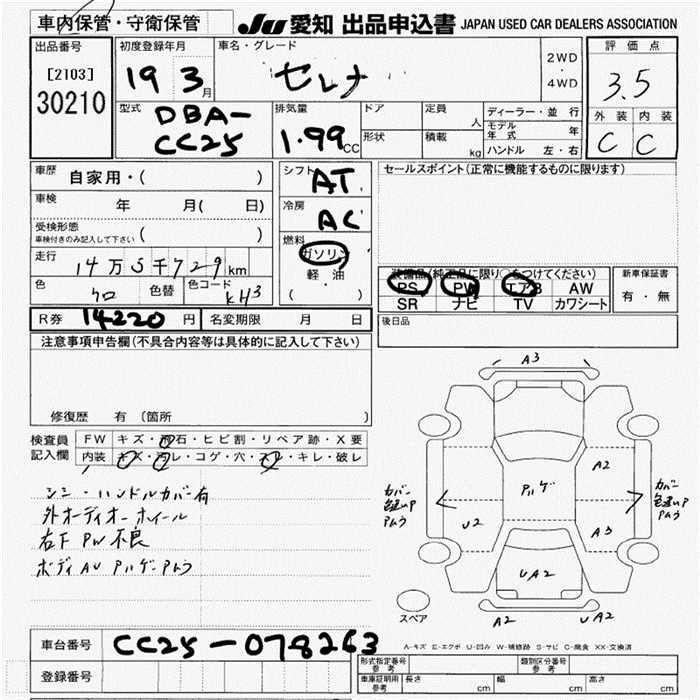 車内保管・守衛保管
JU 愛知 出品申込書 JAPAN USED CAR DEALERS ASSOCIATION
出品番号
[2103]
30210
初度登録年月
19 3月
車名・グレード
セレナ
2WD
・
4WD
評価点
3.5
外装 内装
C C
型式
DBA-
CC25
排気量
1.99cc
ドア
形状
定員
人
積載
kg
ディーラー・並行
モデル年式 年
ハンドル 左・右
車歴 自家用・( )
車検 年 月( 日)
受検形態
車検付きのみ記入して下さい ( )
走行 14万5千729km
色 クロ 色替 色コード KH3
シフト AT
冷房 AC
燃料
ガソリン
軽・油
( ・ )
セールスポイント(正常に機能するものに限ります)
装備品(純正品に限り○をつけてください)
PS PW エアB AW
SR ナビ TV カワシート
新車保証書
有・無
R券 14220円 名変期限 月 日
後日品
注意事項申告欄(不具合内容等は具体的に記入して下さい)
修復歴 有(箇所 )
検査員
記入欄
FW キズ・飛石・ヒビ割・リペア跡・X要
内装 キズ・汚レ・コゲ・穴・スレ・キレ・破レ
シミ・ハンドルカバー有
外オーディオーホイール
右下PW不良
ボディAU Pハゲ-Pムラ
A3
A2
Pハゲ
カバー
色違いP
Pムラ
カバー
色違いP
Pムラ
U2
A3
UA2
A2
UA2
スペア
A-キズ E-エクボ U-凹み W-補修跡 S-サビ C-腐食 XX-交換済
車台番号 CC25-078263
登録番号
形式指定番号
参考
類別区分番号
参考
車庫証明用
参考
長さ cm 幅 cm 高さ cm